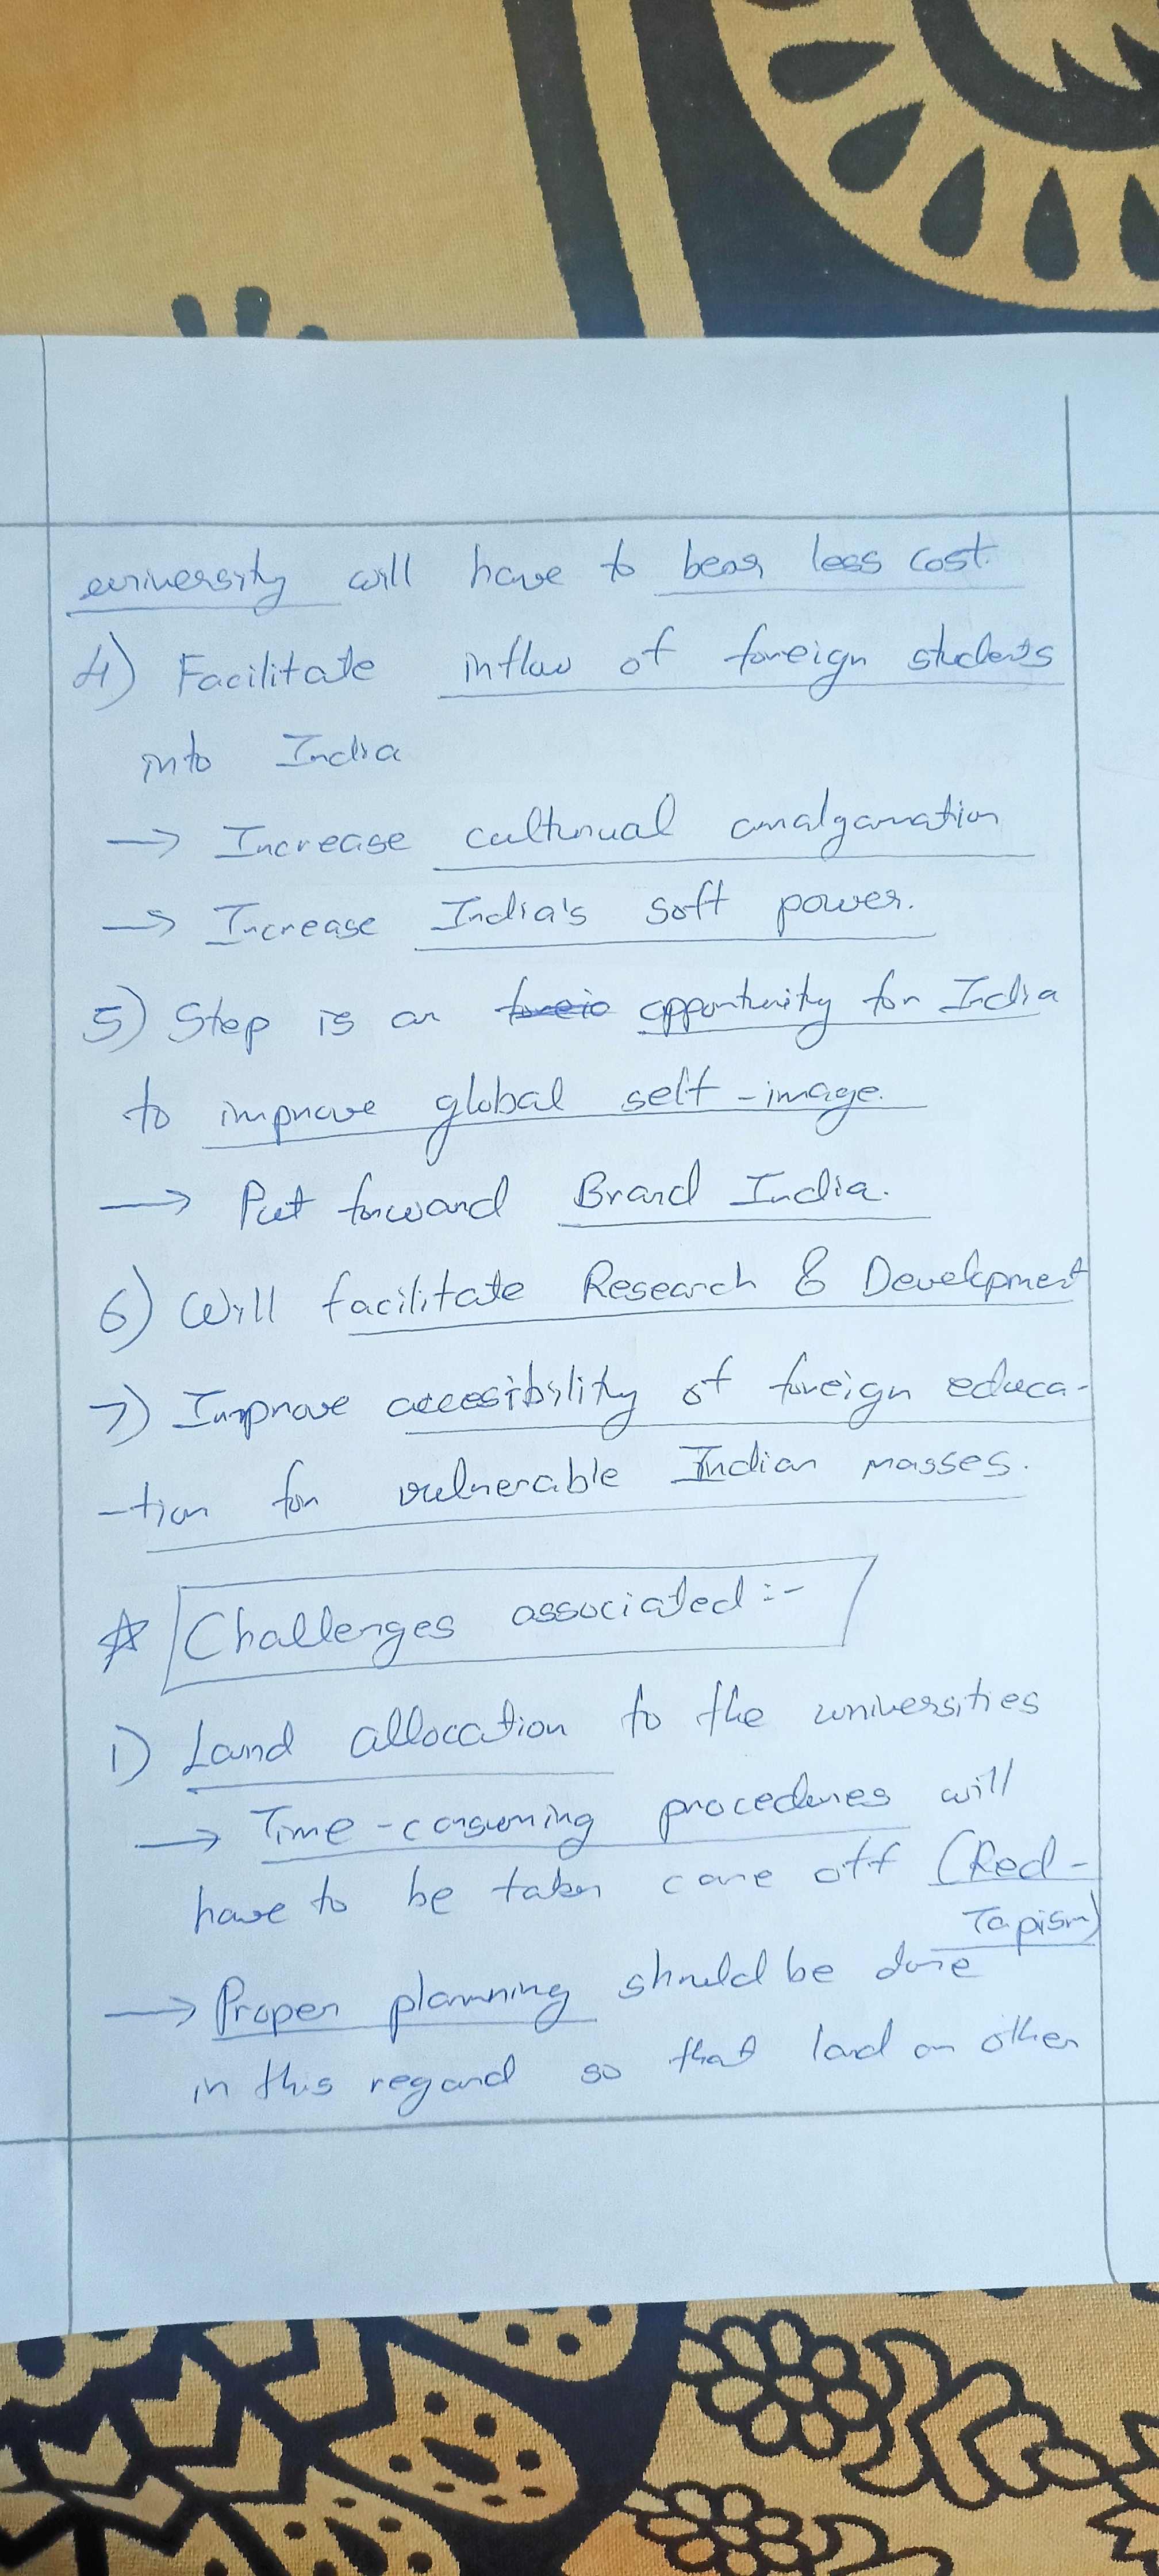 university will have to bear less cost.
4) Facilitate inflow of foreign students
into India
→ Increase cultunual amalgamation
→ Increase India's soft power.
5) Step is an foreig opportunity for India
to improve global self-image.
→ Put forward Brand India.
6) Will facilitate Research & Development
7) Improve accesibility of foreign educa-
-tion for vulnerable Indian masses.
☆ Challenges associated :-
1) Land allocation to the universities
→ Time-consuming procedures will
have to be taken care off (Red-
Tapism)
→ Proper planning should be done
in this regard so that land on other